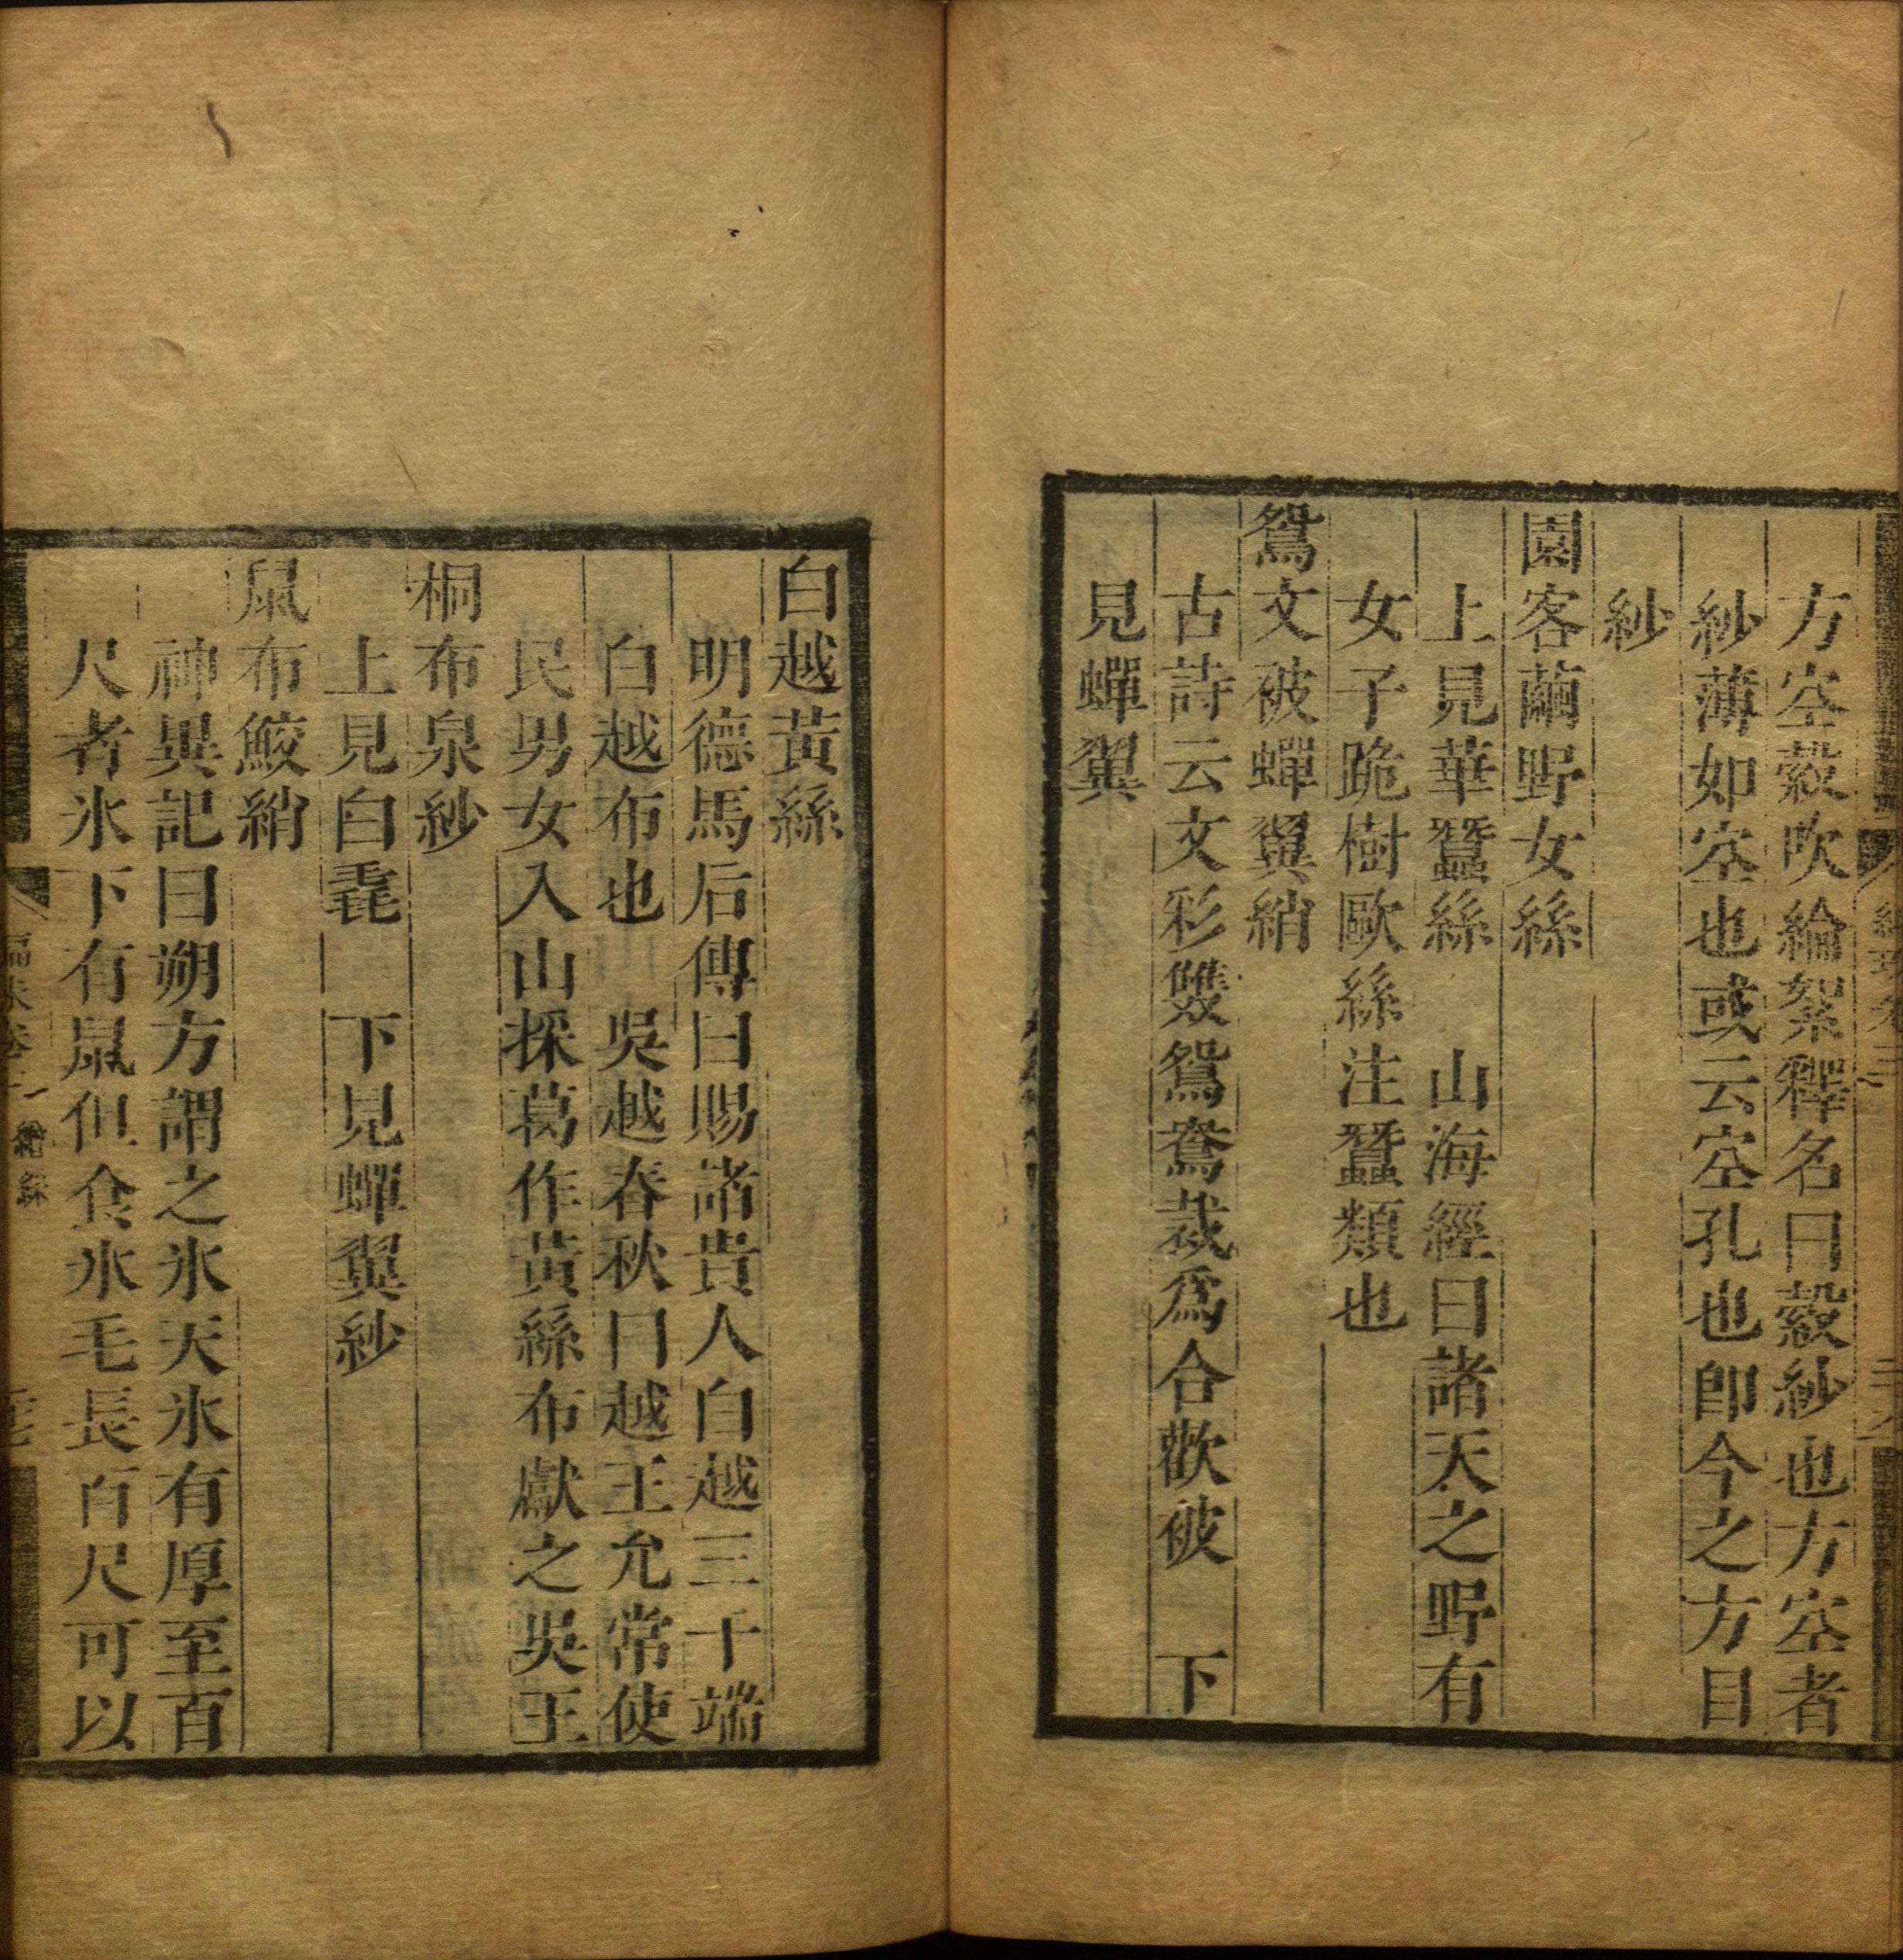 方空縠吹綸絮釋名曰縠紗也方空者
紗薄如空也或云空孔也卽今之方目
紗
園客繭野女絲
上見華蠶絲　山海經曰諸天之野有
女子跪樹歐絲注蠶類也
鴛文被蟬翼綃
古詩云文彩雙鴛鴦裁爲合歡被　下
見蟬翼
白越黃絲
明德馬后傳曰賜諸貴人白越三千端
白越布也　吳越春秋曰越王允常使
民男女入山採葛作黃絲布獻之吳王
桐布泉紗
上見白毳　下見蟬翼紗
鼠布鮫綃
神異記曰朔方謂之氷天氷有厚至百
尺者氷下有鼠但食氷毛長百尺可以